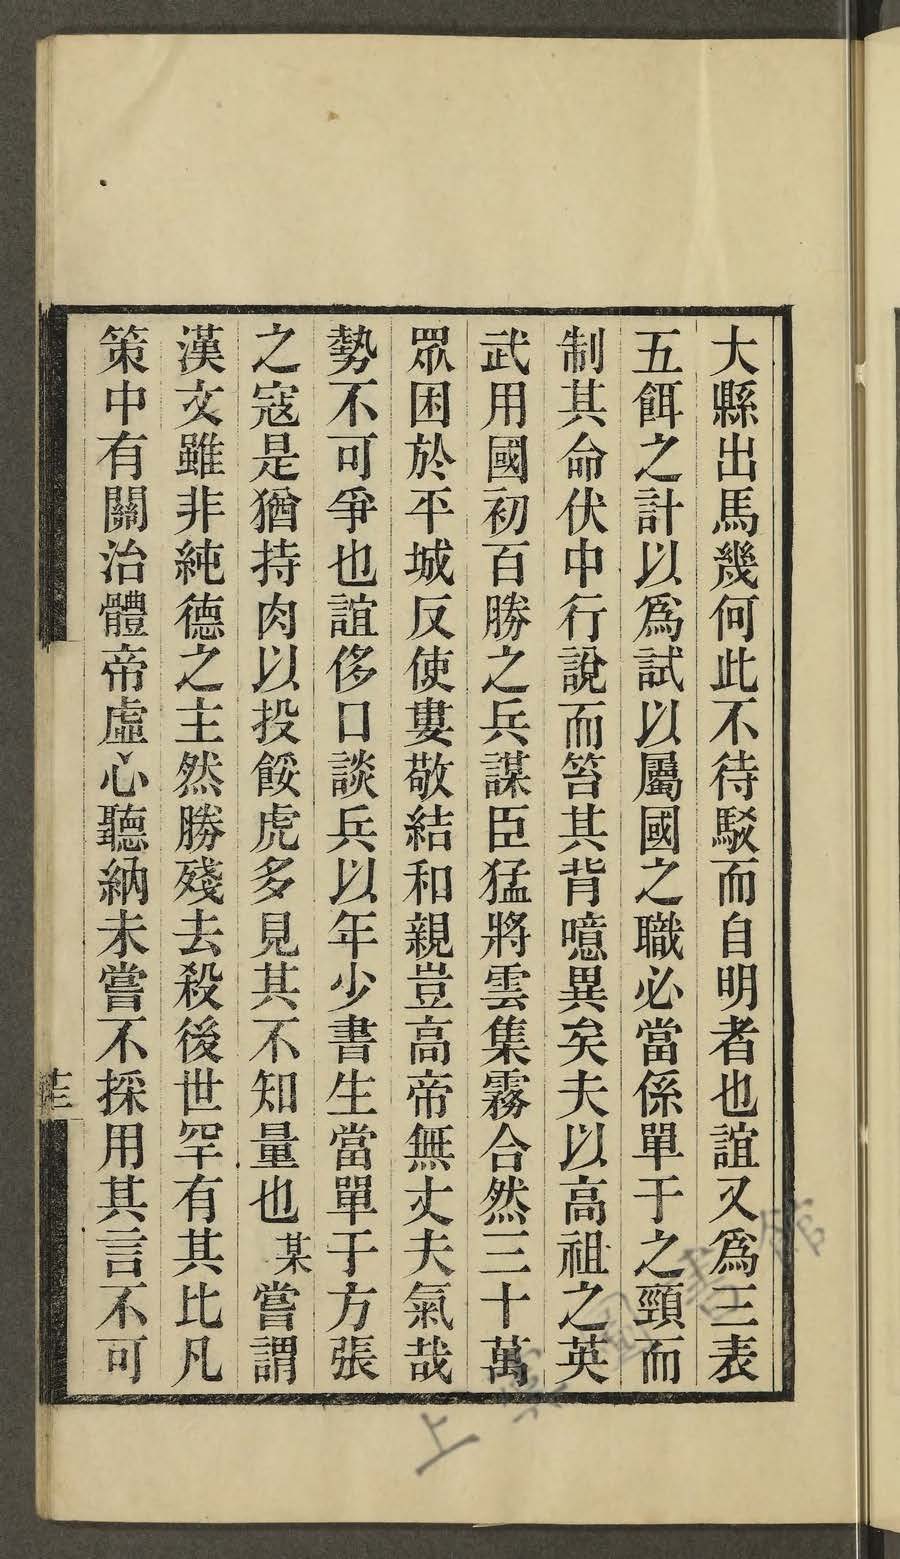 大縣出馬幾何此不待駁而自明者也誼又爲三表
五餌之計以爲試以屬國之職必當係單于之頸而
制其命伏中行說而笞其背噫異矣夫以高祖之英
武用國初百勝之兵謀臣猛將雲集霧合然三十萬
眾困於平城反使婁敬結和親豈高帝無丈夫氣哉
勢不可爭也誼侈口談兵以年少書生當單于方張
之寇是猶持肉以投餒虎多見其不知量也某嘗謂
漢文雖非純德之主然勝殘去殺後世罕有其比凡
策中有關治體帝虛心聽納未嘗不採用其言不可
上海圖書館